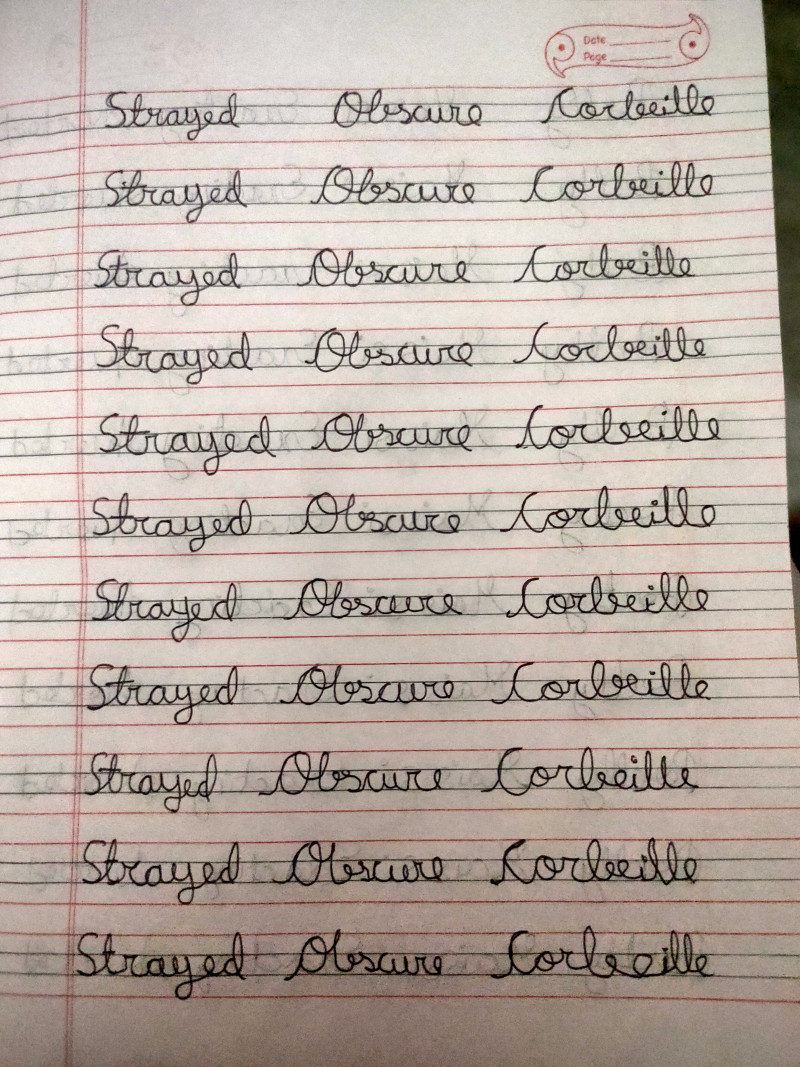 Date
Page
Strayed Obscure Corbeille
Strayed Obscure Corbeille
Strayed Obscure Corbeille
Strayed Obscure Corbeille
Strayed Obscure Corbeille
Strayed Obscure Corbeille
Strayed Obscure Corbeille
Strayed Obscure Corbeille
Strayed Obscure Corbeille
Strayed Obscure Corbeille
Strayed Obscure Corbeille